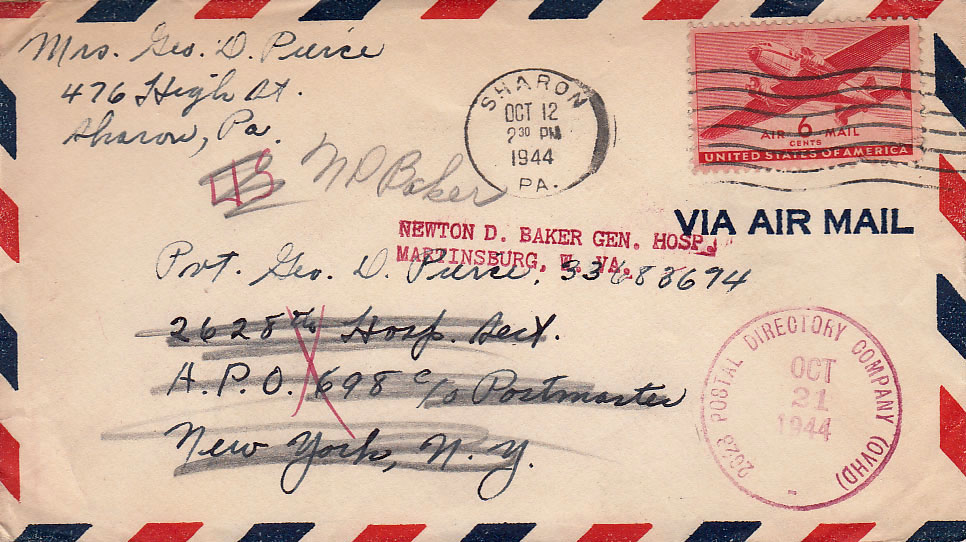 Mrs. Geo. D. Pierce
476 High St.
Sharon, Pa.
SHARON
OCT 12
2 30 PM
1944
PA.
AIR 6 MAIL
CENTS
UNITED STATES OF AMERICA
VIA AIR MAIL
N D Baker
NEWTON D. BAKER GEN. HOSP.
MARTINSBURG, W. VA.
Pvt. Geo. D. Pierce, 33683694
2628th Hosp. Sect.
A.P.O. 698 c/o Postmaster
New York, N.Y.
2628 POSTAL DIRECTORY COMPANY (OVHD)
OCT
21
1944